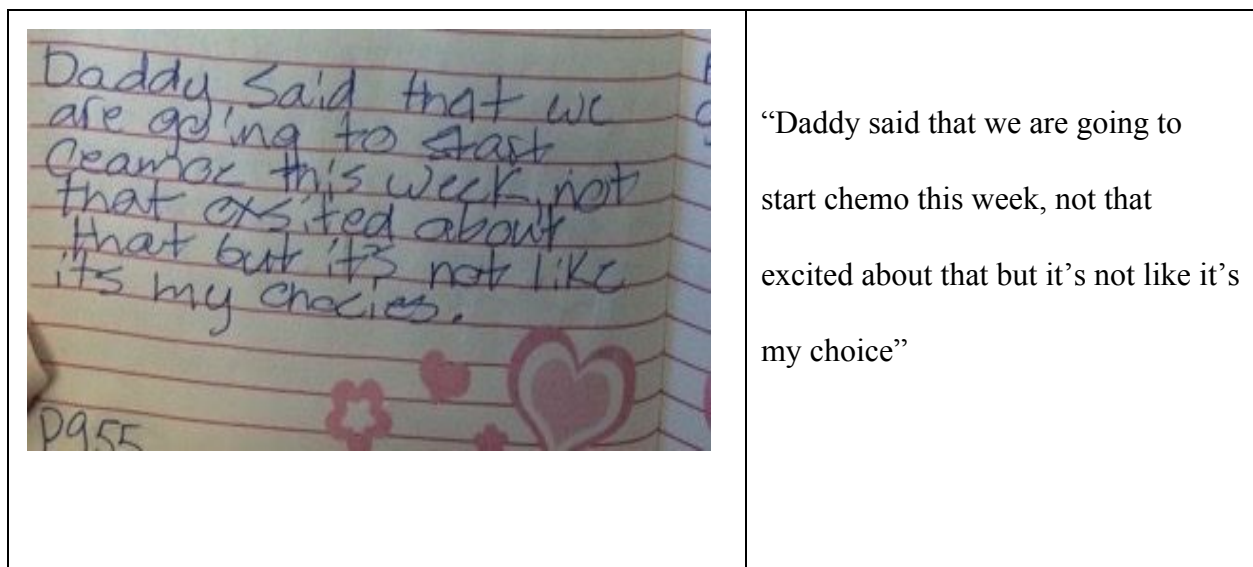 Daddy said that we
are going to start
ceamoe this week, not
that exsited about
that but it's not like
it's my chocies.
pg55
“Daddy said that we are going to
start chemo this week, not that
excited about that but it’s not like it’s
my choice”